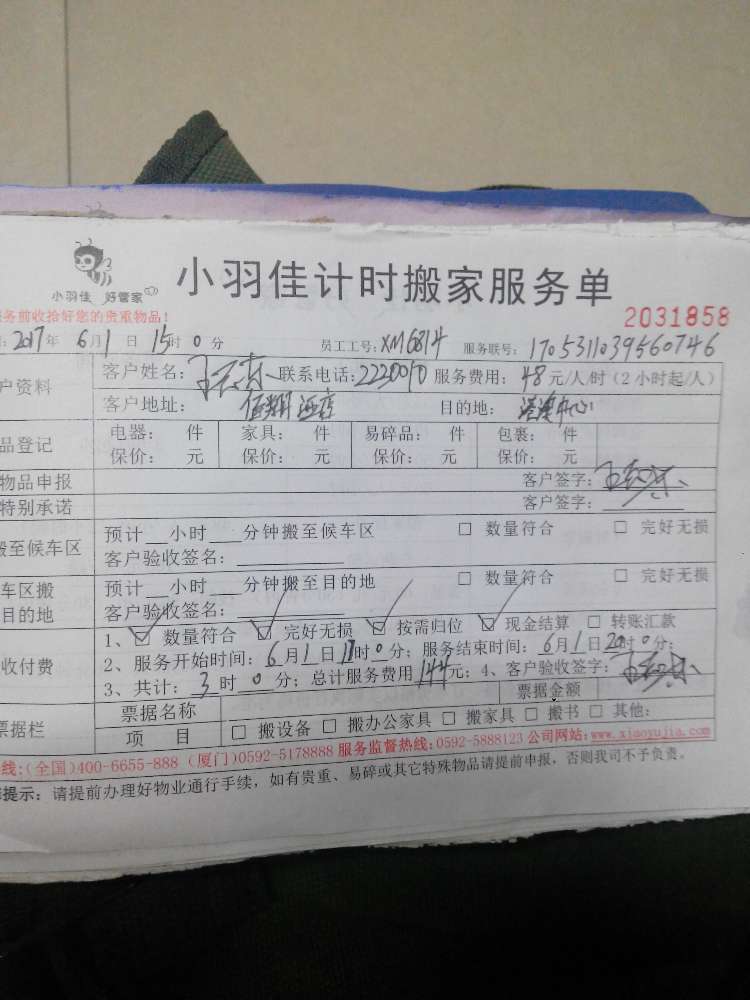 小羽佳计时搬家服务单
小羽佳 好管家
务前收拾好您的贵重物品!
2031858
: 2017年 6月 1 日 15时 0 分 员工工号: XM6814 服务联号: 170531103956074 6
户资料 客户姓名: 联系电话: 2220010 服务费用: 48 元/人/时 (2 小时起/人)
客户地址: 佰翔酒店 目的地: 港澳中心
品登记 电器: 件 家具: 件 易碎品: 件 包裹: 件
保价: 元 保价: 元 保价: 元 保价: 元
物品申报 客户签字:
特别承诺 客户签字:
搬至候车区 预计__小时___分钟搬至候车区 □ 数量符合 □ 完好无损
客户验收签名:
车区搬 预计__小时___分钟搬至目的地 □ 数量符合 □ 完好无损
目的地 客户验收签名:
1、☑ 数量符合 ☑ 完好无损 ☑ 按需归位 ☑ 现金结算 □ 转账汇款
收付费 2、服务开始时间: 6月1日17时0分; 服务结束时间: 6月1日20时0分;
3、共计: 3 时 0 分; 总计服务费用 144 元; 4、客户验收签字:
票据栏 票据名称 票据金额
项 目 □ 搬设备 □ 搬办公家具 □ 搬家具 □ 搬书 □ 其他:
线:(全国)400-6655-888 (厦门)0592-5178888 服务监督热线:0592-5888123 公司网站:www.xiaoyujia.com
提示: 请提前办理好物业通行手续, 如有贵重、易碎或其它特殊物品请提前申报, 否则我司不予负责。